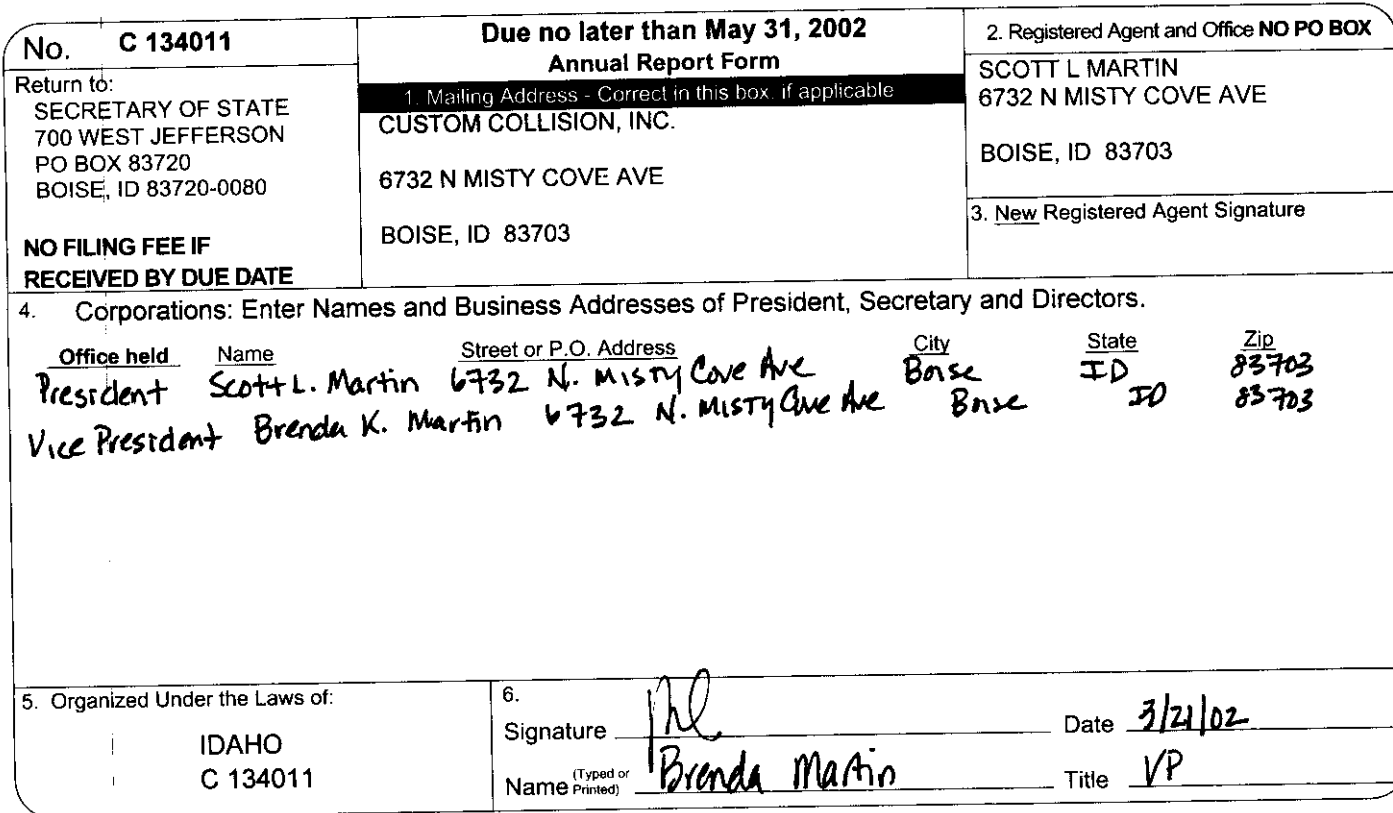 No. C 134011
Return to:
SECRETARY OF STATE
700 WEST JEFFERSON
PO BOX 83720
BOISE, ID 83720-0080
NO FILING FEE IF
RECEIVED BY DUE DATE
Due no later than May 31, 2002
Annual Report Form
1. Mailing Address - Correct in this box, if applicable
CUSTOM COLLISION, INC.
6732 N MISTY COVE AVE
BOISE, ID 83703
2. Registered Agent and Office NO PO BOX
SCOTT L MARTIN
6732 N MISTY COVE AVE
BOISE, ID 83703
3. New Registered Agent Signature
4. Corporations: Enter Names and Business Addresses of President, Secretary and Directors.
Office held Name Street or P.O. Address City State Zip
President Scott L. Martin 6732 N. Misty Cove Ave Boise ID 83703
Vice President Brenda K. Martin 6732 N. Misty Cove Ave Boise ID 83703
5. Organized Under the Laws of:
IDAHO
C 134011
6.
Signature Date 3/21/02
Name (Typed or Printed) Brenda Martin Title VP